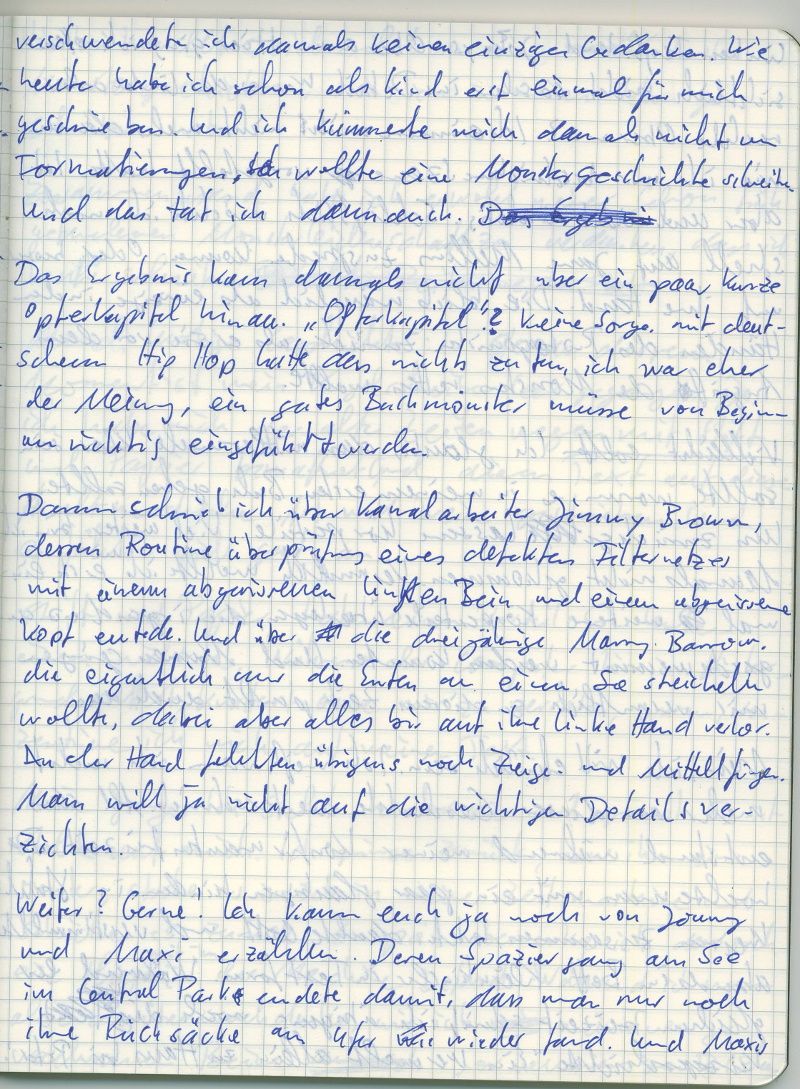 verschwendete ich damals keinen einzigen Gedanken. Wie
heute habe ich schon als Kind erst einmal für mich
geschrieben. Und ich kümmerte mich damals nicht um
Formatierungen, ich wollte eine Monstergeschichte schreiben
Und das tat ich dann auch. Das Ergebnis
Das Ergebnis kam damals nicht über ein paar kurze
Opferkapitel hinau. „Opferkapitel"? Keine Sorge. mit deut-
schem Hip Hop hatte das nichts zu tun, ich war eher
der Meinung, ein gutes Buchmonster müsse von Beginn
an richtig eingeführt werden.
Darum schrieb ich über Kanalarbeiter Jimmy Brown,
dessen Routineüberprüfung eines defekten Filternetzes
mit einem abgerissenen linken Bein und einem abgerissenen
Kopf endete. Und über die dreijährige Marry Barrow.
die eigentlich nur die Enten an einem See streicheln
wollte, dabei aber alles bis auf ihre linke Hand verlor.
An der Hand fehlten übrigens noch Zeige- und Mittelfinger.
Man will ja nicht auf die wichtigen Details ver-
zichten.
Weiter? Gerne! Ich kann euch ja noch von Jonny
und Maxi erzählen. Deren Spaziergang am See
im Central Park endete damit, dass man nur noch
ihre Rucksäcke am Ufer wieder fand. Und Maxis